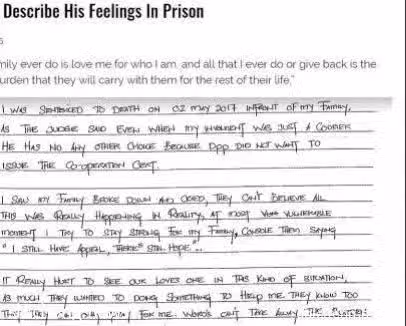 Describe His Feelings In Prison
mily ever do is love me for who I am and all that I ever do or give back is the
urden that they will carry with them for the rest of their life,"
I WAS SENTENCED TO DEATH ON 02 MAY 2017 INFRONT OF MY FAMILY,
AS THE JUDGE SAID EVEN WHEN MY INVOLMENT WAS JUST A COURIER
HE HAS NO ANY OTHER CHOICE BECAUSE DPP DID NOT WANT TO
ISSUE THE CO-OPERATION CERT.
I SAW MY FAMILY BROKE DOWN AND CRIED, THEY CAN'T BELIEVE ALL
THIS WAS REALLY HAPPENING IN REALITY, AT MOST VULNERABLE
MOMENT I TRY TO STAY STRONG FOR MY FAMILY, CONSOLE THEM SAYING
" I STILL HAVE APPEAL, STILL HOPE"..
IT REALLY HURT TO SEE OUR LOVES ONE IN THIS KIND OF SITUATION,
AS MUCH THEY WANTED TO DOING SOMETHING TO HELP ME THEY KNOW TOO
THAT THEY CAN ONLY FOR ME. WORDS CAN'T TAKE AWAY THE